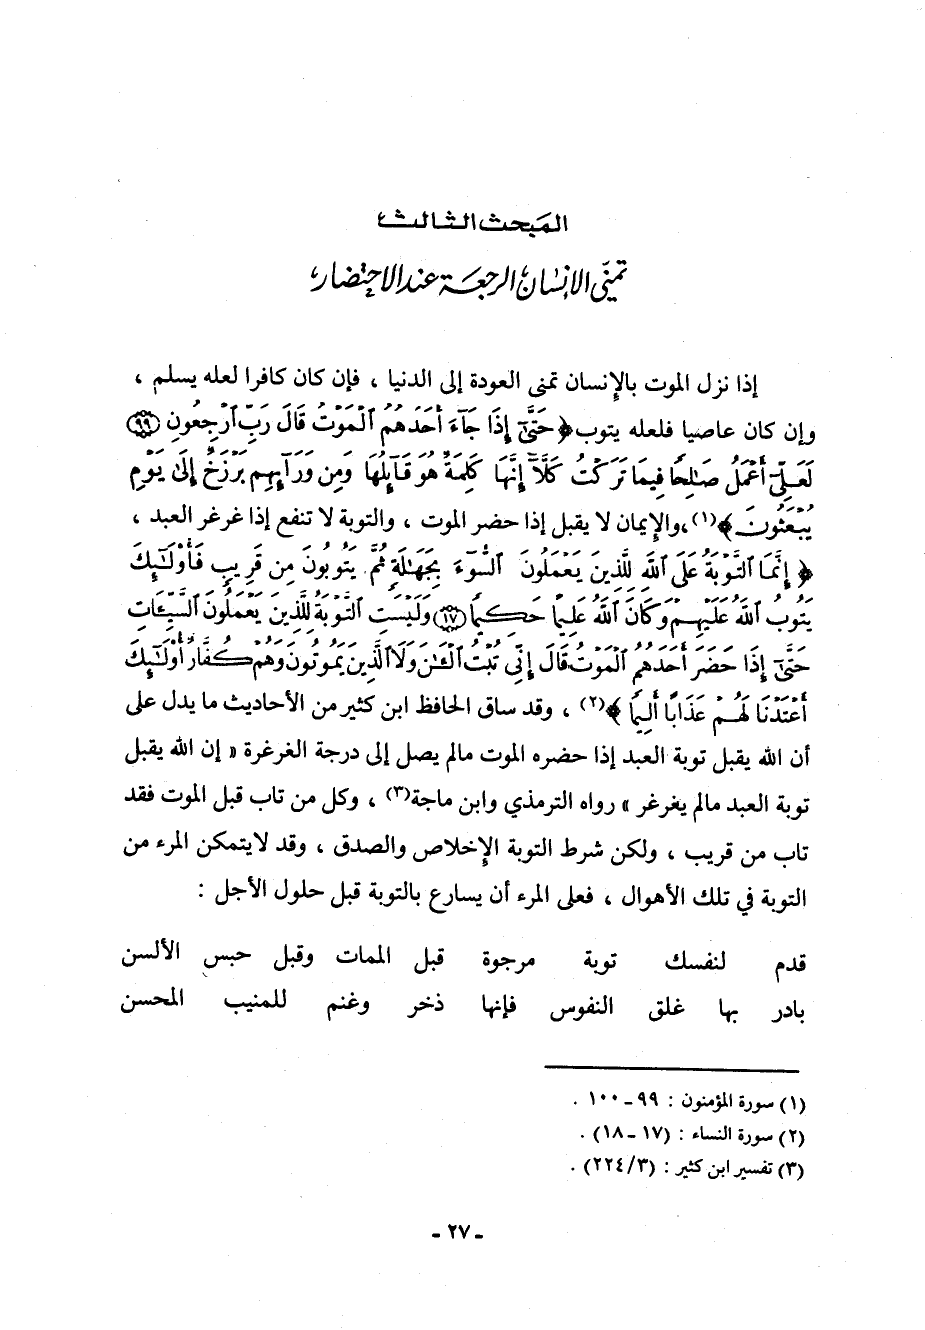 المبحث الثالث
تمنّي الإنسان الرجعة عند الاحتضار
إذا نزل الموت بالإنسان تمنى العودة إلى الدنيا ، فإن كان كافرا لعله يسلم ،
وإن كان عاصيا فلعله يتوب ﴿ حَتَّىٰٓ إِذَا جَآءَ أَحَدَهُمُ ٱلْمَوْتُ قَالَ رَبِّ ٱرْجِعُونِ ٩٩
لَعَلِّيٓ أَعْمَلُ صَٰلِحًا فِيمَا تَرَكْتُ كَلَّآ إِنَّهَا كَلِمَةٌ هُوَ قَآئِلُهَا وَمِن وَرَآئِهِم بَرْزَخٌ إِلَىٰ يَوْمِ
يُبْعَثُونَ ﴾(١)، والإيمان لا يقبل إذا حضر الموت ، والتوبة لا تنفع إذا غرغر العبد ،
﴿ إِنَّمَا ٱلتَّوْبَةُ عَلَى ٱللَّهِ لِلَّذِينَ يَعْمَلُونَ ٱلسُّوٓءَ بِجَهَٰلَةٍ ثُمَّ يَتُوبُونَ مِن قَرِيبٍ فَأُو۟لَٰٓئِكَ
يَتُوبُ ٱللَّهُ عَلَيْهِمْ وَكَانَ ٱللَّهُ عَلِيمًا حَكِيمًا ١٧ وَلَيْسَتِ ٱلتَّوْبَةُ لِلَّذِينَ يَعْمَلُونَ ٱلسَّيِّـَٔاتِ
حَتَّىٰٓ إِذَا حَضَرَ أَحَدَهُمُ ٱلْمَوْتُ قَالَ إِنِّي تُبْتُ ٱلْـَٰٔنَ وَلَا ٱلَّذِينَ يَمُوتُونَ وَهُمْ كُفَّارٌ أُو۟لَٰٓئِكَ
أَعْتَدْنَا لَهُمْ عَذَابًا أَلِيمًا ﴾(٢) ، وقد ساق الحافظ ابن كثير من الأحاديث ما يدل على
أن الله يقبل توبة العبد إذا حضره الموت مالم يصل إلى درجة الغرغرة « إن الله يقبل
توبة العبد مالم يغرغر » رواه الترمذي وابن ماجة(٣) ، وكل من تاب قبل الموت فقد
تاب من قريب ، ولكن شرط التوبة الإخلاص والصدق ، وقد لايتمكن المرء من
التوبة في تلك الأهوال ، فعلى المرء أن يسارع بالتوبة قبل حلول الأجل :
قدم لنفسك توبة مرجوة قبل الممات وقبل حبس الألسن
بادر بها غلق النفوس فإنها ذخر وغنم للمنيب المحسن
(١) سورة المؤمنون : ٩٩ ـ ١٠٠ .
(٢) سورة النساء : (١٧ ـ ١٨) .
(٣) تفسير ابن كثير : (٢٢٤/٣) .
ـ ٢٧ ـ